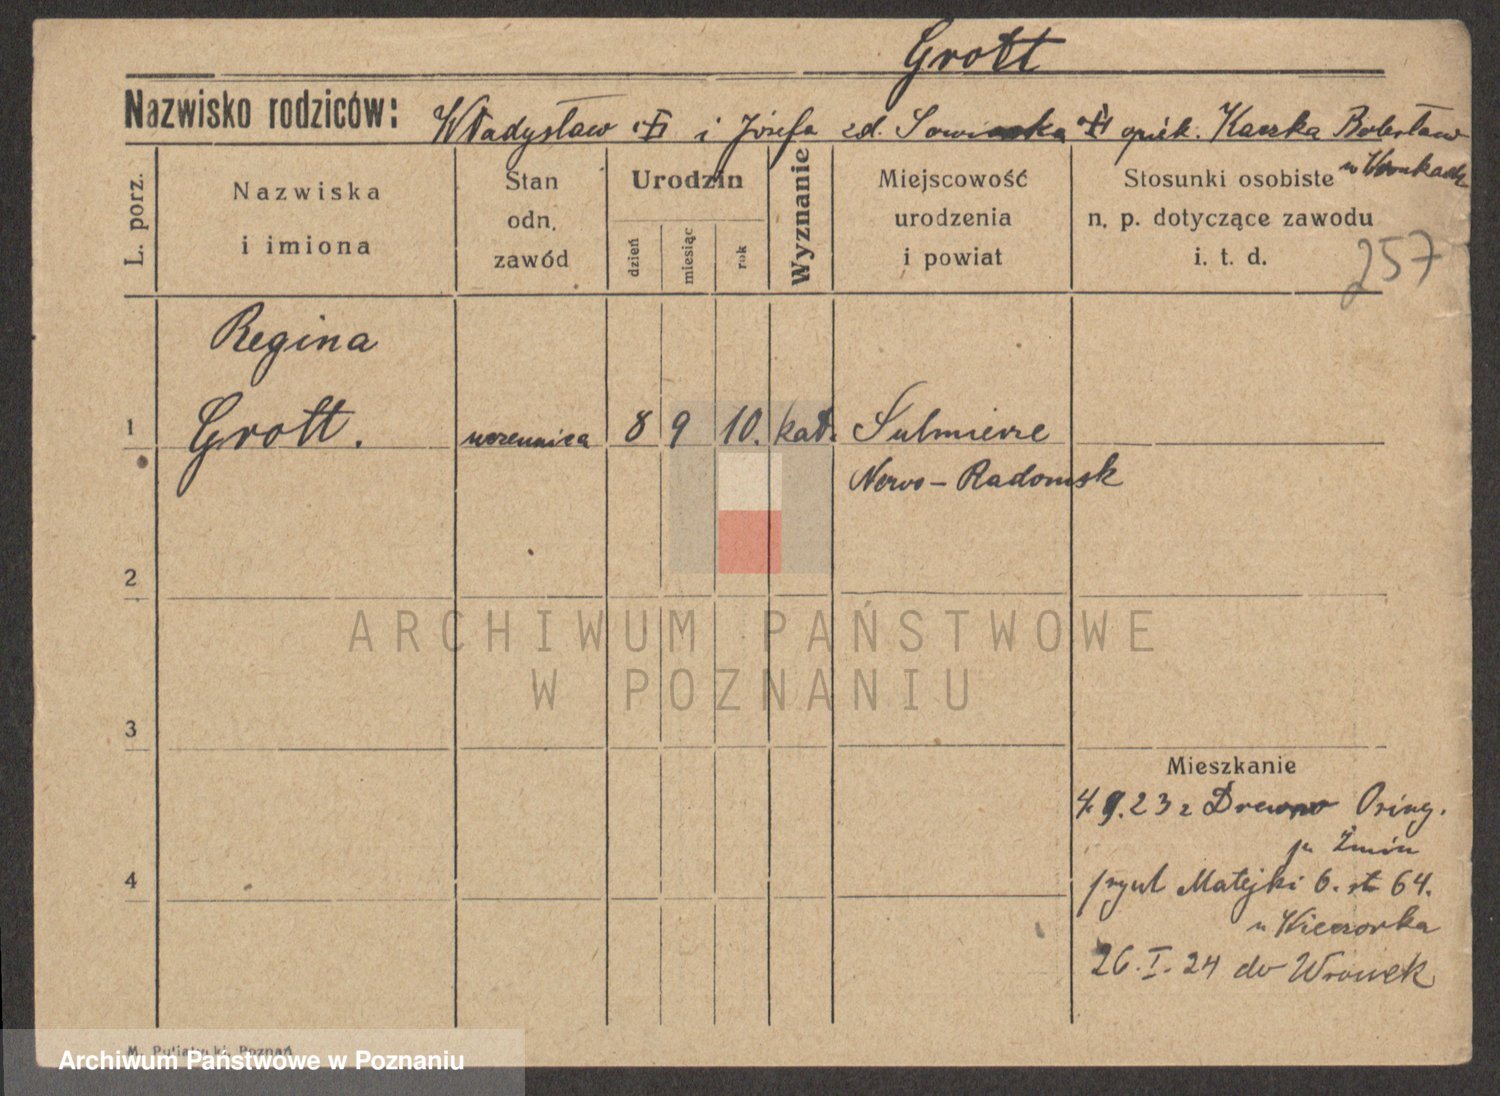 Grott
Nazwisko rodziców: Władysław i Józefa zd. opiek. Kaczka Bolesław
w Wronkach
L. porz.
Nazwiska
i imiona
Stan
odn.
zawód
Urodzin
dzień
miesiąc
rok
Wyznanie
Miejscowość
urodzenia
i powiat
Stosunki osobiste
n. p. dotyczące zawodu
i. t. d.
257
Regina
1 Grott. uczennica 8 9 10. kat. Sulmierze
Nowo-Radomsk
2
3
4
Mieszkanie
4.9.23 z
p. Żnin
przyul Matejki 6. st 64.
u Wieczorka
26.I.24 do Wronek
ARCHIWUM PAŃSTWOWE
W POZNANIU
M. Poznań
Archiwum Państwowe w Poznaniu